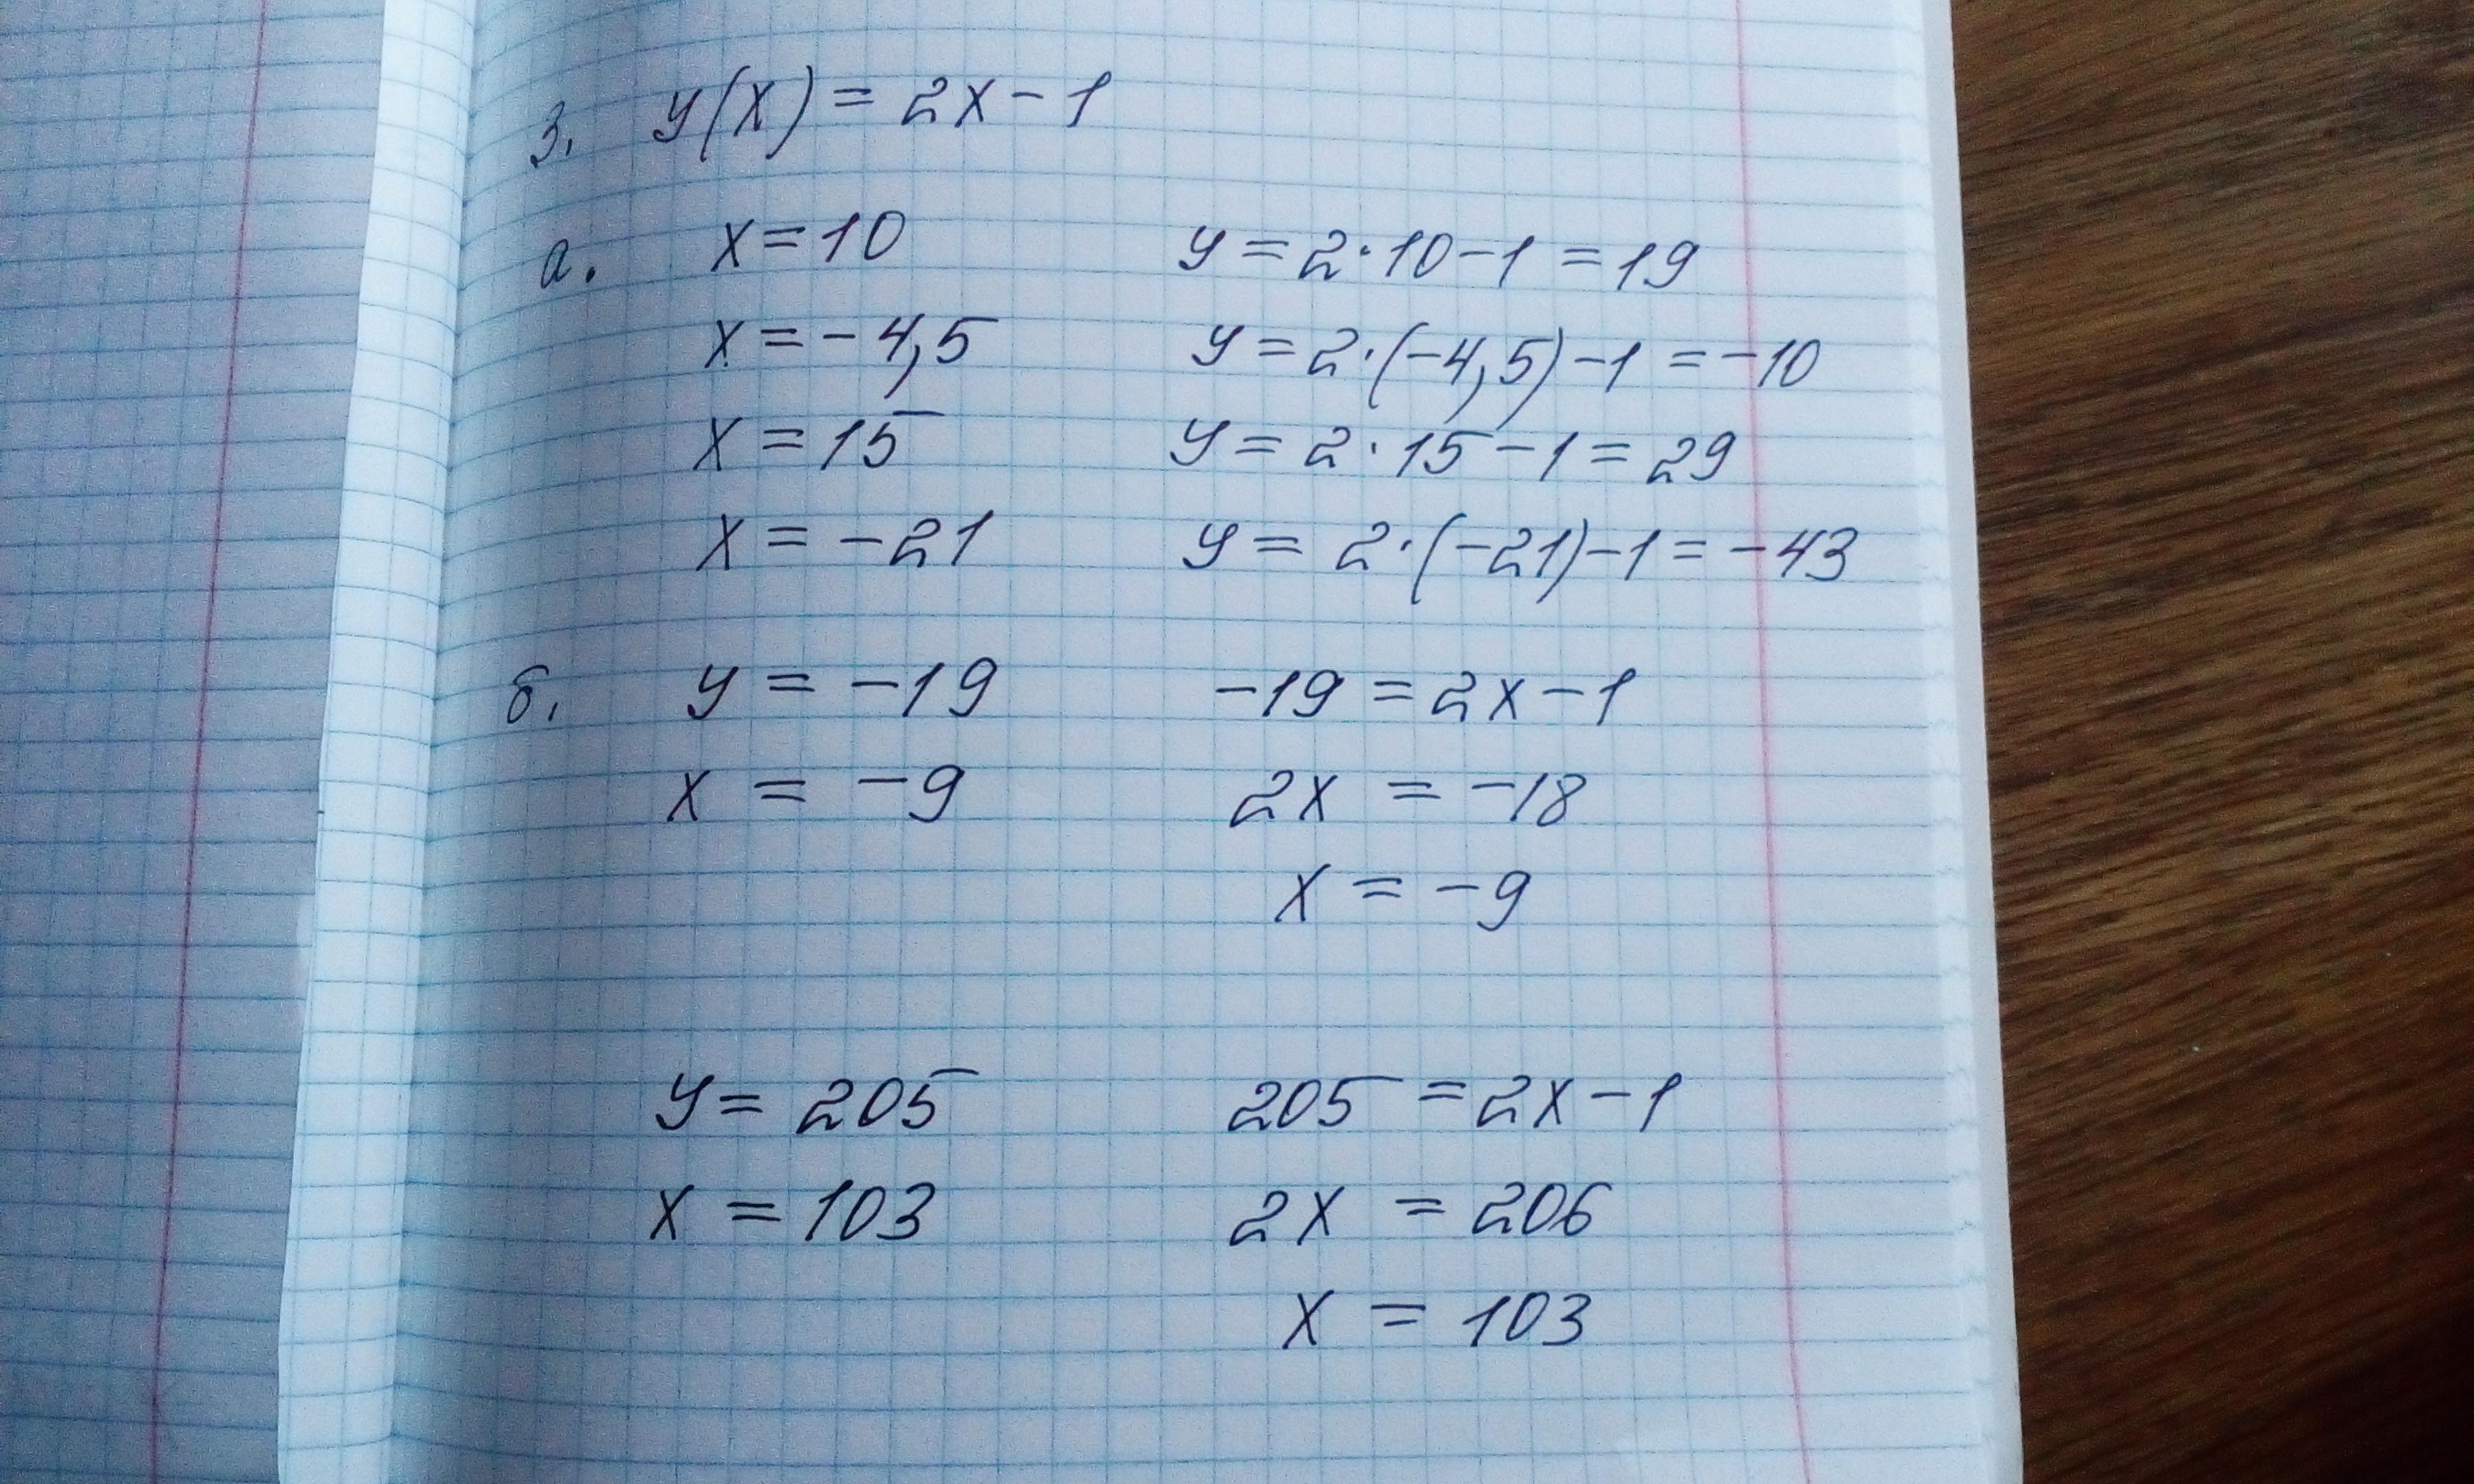 3. y(x) = 2x - 1
а. x = 10 y = 2·10 - 1 = 19
x = -4,5 y = 2·(-4,5) - 1 = -10
x = 15 y = 2·15 - 1 = 29
x = -21 y = 2·(-21) - 1 = -43
б. y = -19 -19 = 2x - 1
x = -9 2x = -18
x = -9
y = 205 205 = 2x - 1
x = 103 2x = 206
x = 103